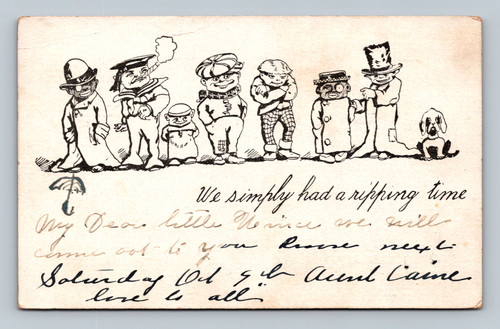 We simply had a ripping time
My Dear little Neice we will
come out to you  next
Saturday Oct 9th Aunt Carrie
love to all